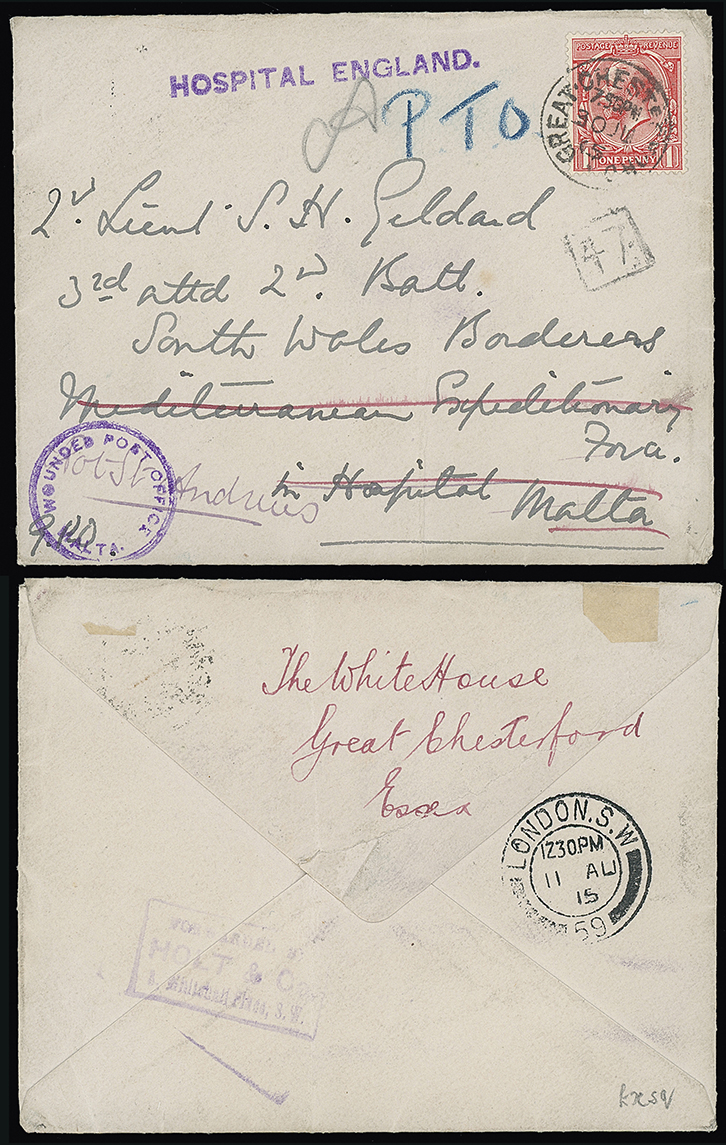 HOSPITAL ENGLAND.
PTO
POSTAGE REVENUE
ONE PENNY
GREAT CHESTERFORD
7.30PM
30 JY
15
2d. Lieut. S. H. Geldard
47
3rd attd 2d. Batt.
South Wales Borderers
Mediterranean Expeditionary
Force.
in Hospital
Malta
WOUNDED POST OFFICE
MALTA.
Not St Andrews
The White House
Great Chesterford
Essex
LONDON. S.W
12 30. PM
11 AU
15
59
HOLT & Co
S.W.